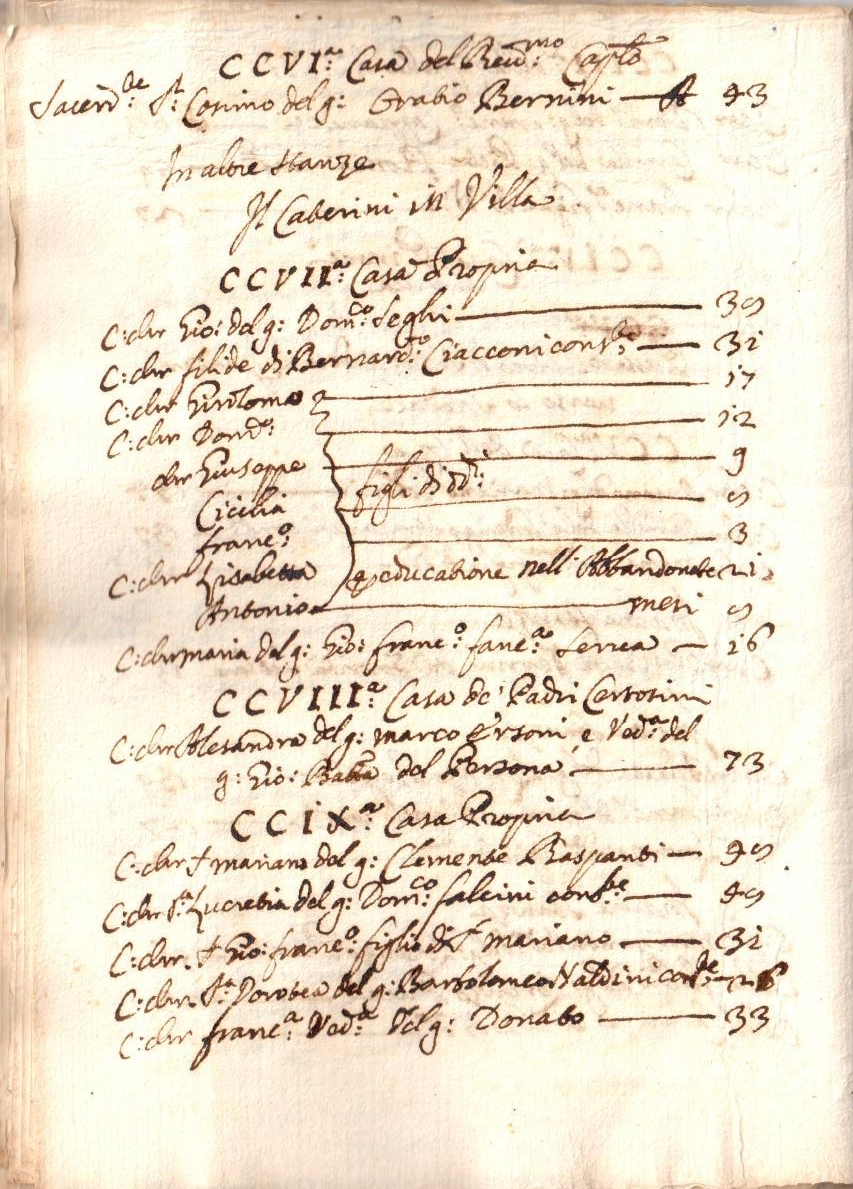 CCVIª: Casa del Reud:mo Caplo
Sacerd:te Sr: Cosimo del q: Oratio Bernini — A 43
In altre stanze
Il Caterini in Villa
CCVIIª: Casa Propria
C: chr Gio: del q: Dom:co Seghi — 39
C: chr filide di Bernard:o Ciacconi cons:te — 31
C: chr Girolomo — 17
C: chr Dond:a — 12
chr Giuseppe — 9
Cicilia figli di dti: — 5
franc:o — 3
C: chr Lisabetta p educatione nell' Abbandonate 21
Antonio — mesi 5
C: chr maria del q: Gio: franc:o fanc:a Serua — 16
CCVIIIª: Casa de' Padri Certosini
C: chr Alesandra del q: marco Orsoni, e Ved:a del
q: Gio: Batta del Persona — 73
CCIXª: Casa Propria
C: chr + mariano del q: Clemente Raspanti — 49
C: chr Sª: Lucretia del q: Dom:co falcini cons:te — 49
C: chr. + Gio: franc:o figlio di Sr mariano — 31
C: chr. Sª: Dorotea del q: Bartolomeo Naldini cons:te — 26
C: chr franc:a Ved:a del q: Donato — 33